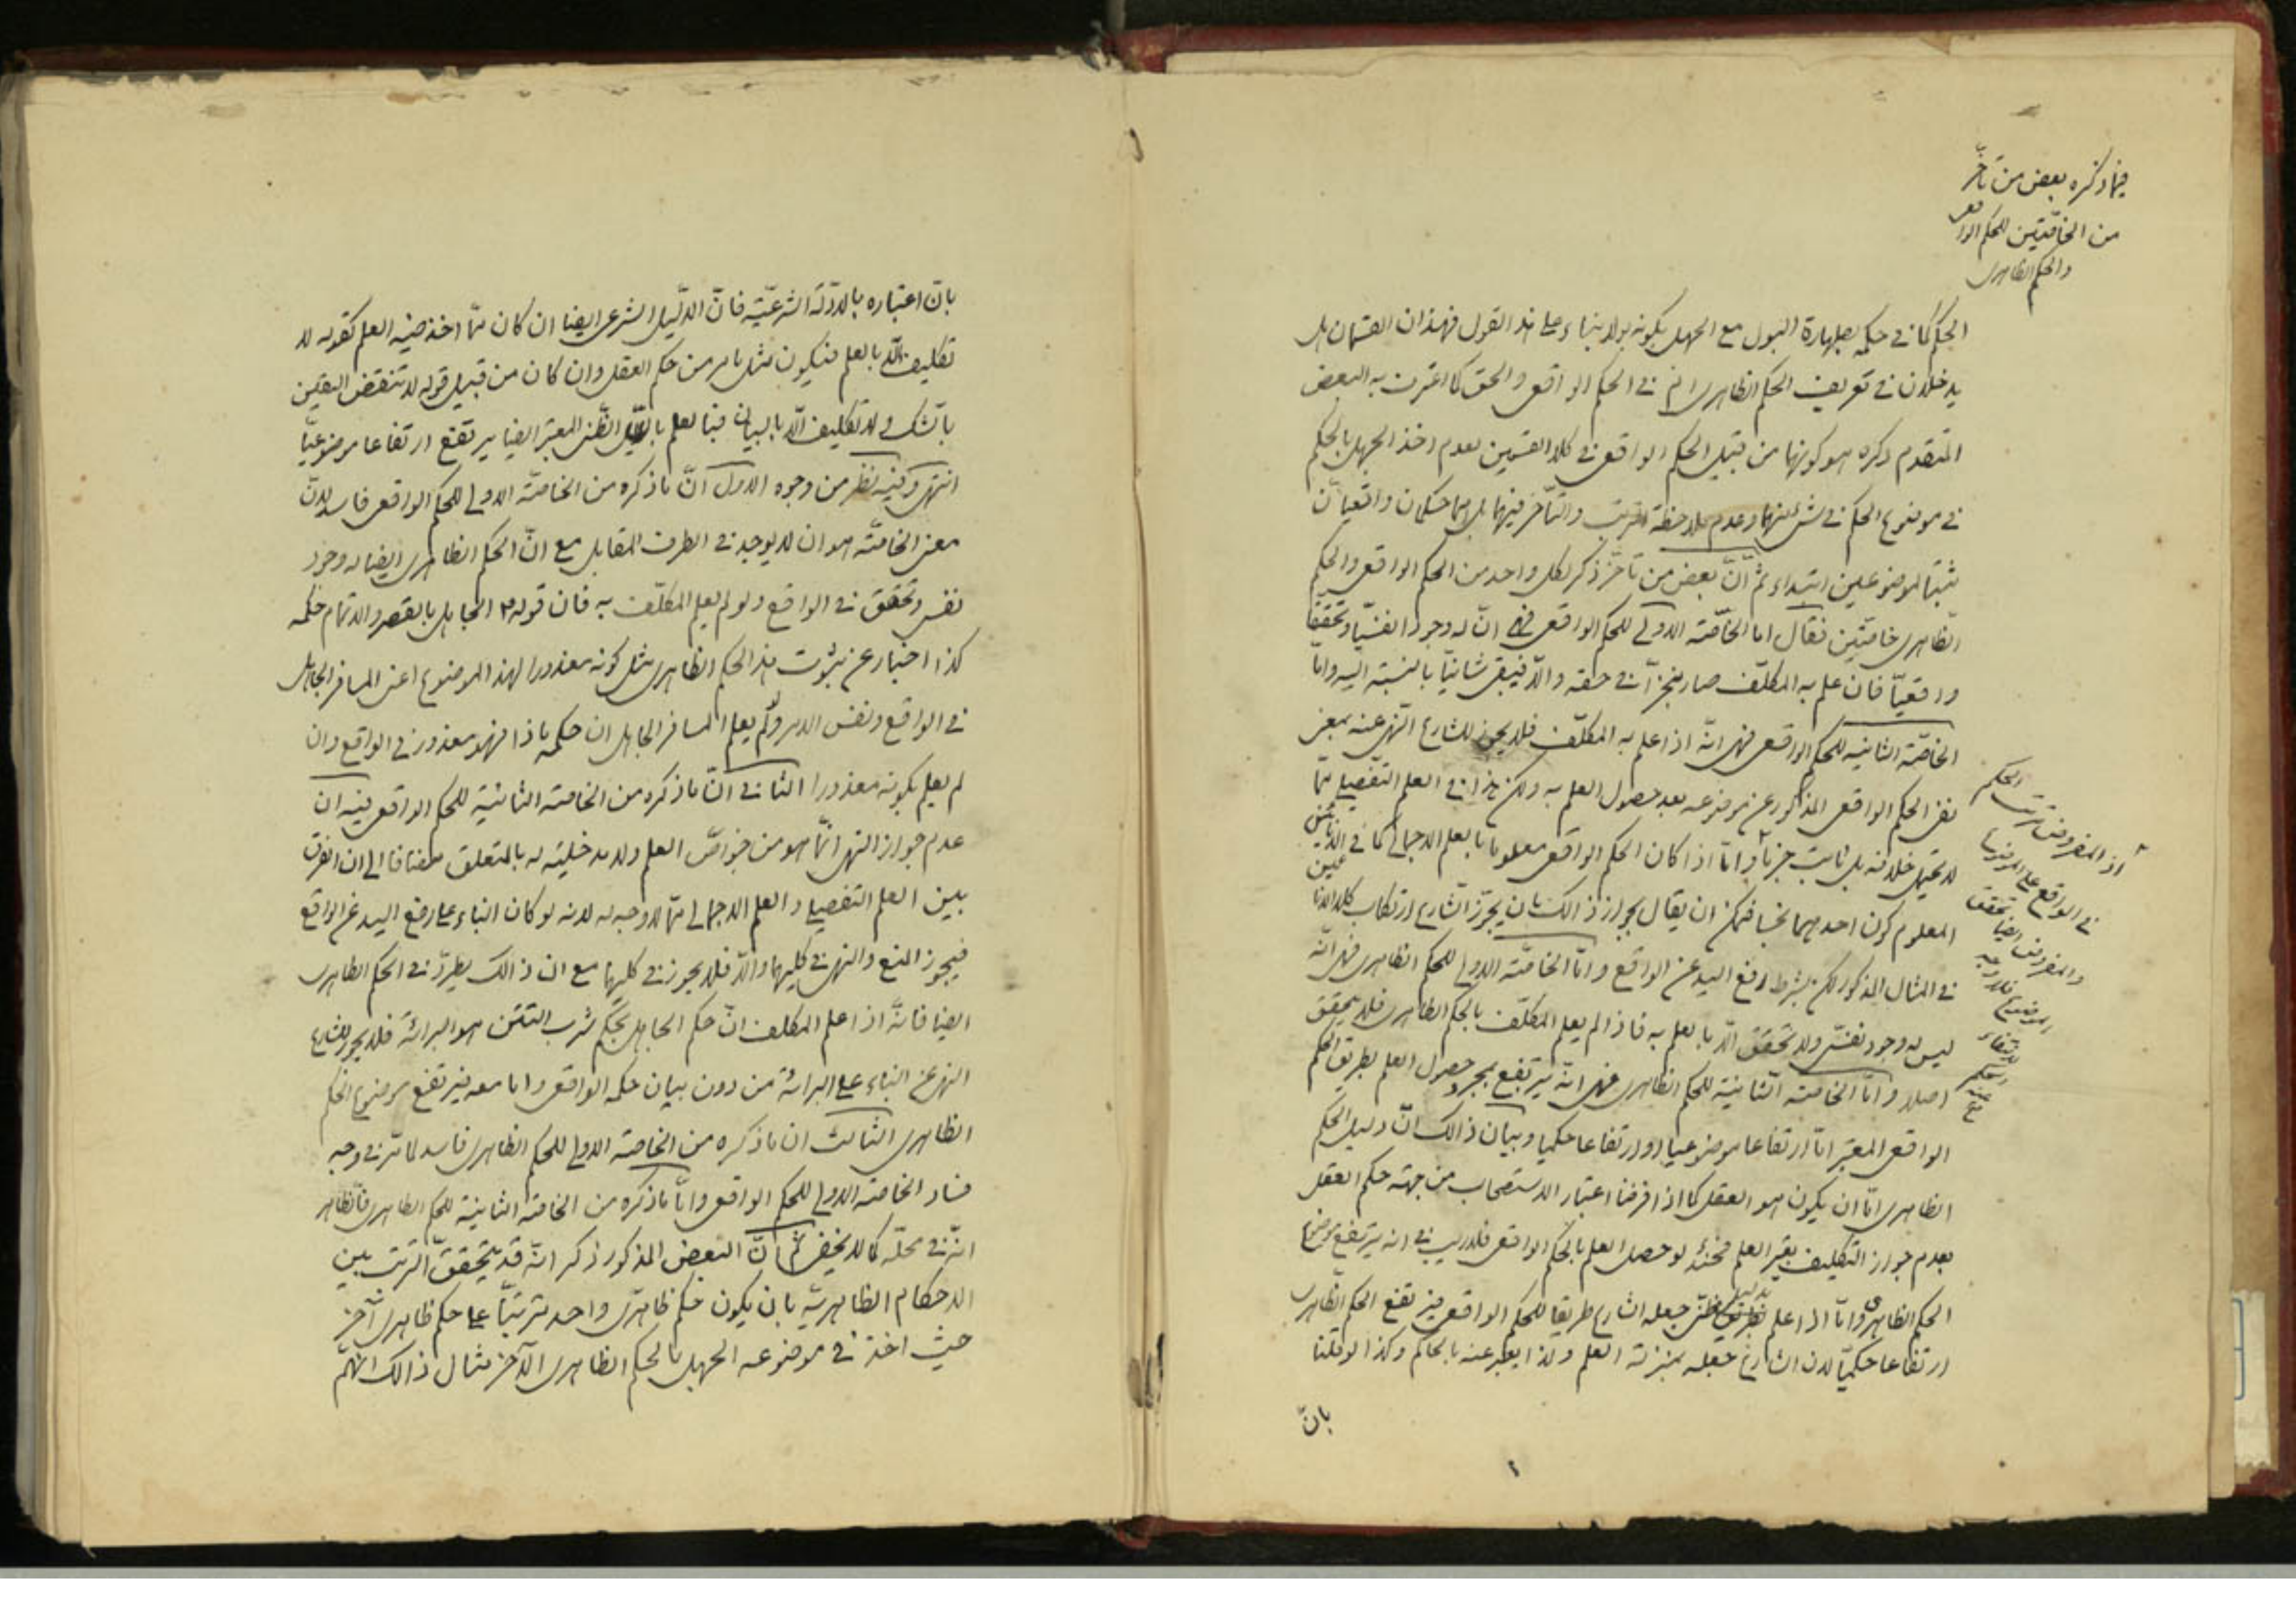 فيما ذكره بعض من تأخّر
من الخاصّتين للحكم الواقعي
والحكم الظاهري
الحكم كما في حكمه بطهارة البول مع الجهل بكونه بولا بناء على هذا القول فهذان القسمان هل
يدخلان في تعريف الحكم الظاهري ام في الحكم الواقعي والحق كما اعترف به البعض
المتقدم ذكره هو كونهما من قبيل الحكم الواقعي في كلا القسمين لعدم اخذ الجهل بالحكم
في موضوع الحكم في شئ منهما وعدم ملاحظة الترتب والتأخر فيهما بل هما حكمان واقعيان
ثبتا لموضوعين ابتداء ثم انّ بعض من تأخّر ذكر لكل واحد من الحكم الواقعي والحكم
الظاهري خاصّتين فقال اما الخاصّة الاولى للحكم الواقعي فهي انّ له وجودا نفسيّا وتحققا
واقعيّا فان علم به المكلّف صار منجزا في حقه والّا فيبقى شانيّا بالنسبة اليه وامّا
الخاصّة الثانية للحكم الواقعي فهي انّه اذا علم به المكلّف فلا يجوز للشارع النهي عنه بمعنى
نفي الحكم الواقعي المذكور عن موضوعه بعد حصول العلم به ولكن هذا في العلم التّفصيلي ممّا
لا يحتمل خلافه بل ثابت جزما وامّا اذا كان الحكم الواقعي معلوما بالعلم الاجمالي كما في الانائين
المعلوم كون احدهما نجسا فيمكن ان يقال بجواز ذالك بان يجوّز الشارع ارتكاب كلا الانائين
في المثال المذكور لكن بشرط رفع اليد عن الواقع وامّا الخاصّة الاولى للحكم الظاهري فهي انّه
ليس له وجود نفسي ولا تحقق الّا بالعلم به فاذا لم يعلم المكلّف بالحكم الظاهري فلا يتحقق
اصلا وامّا الخاصة الثّانية للحكم الظاهري فهي انّه يرتفع بمجرد حصول العلم بطريق الحكم
الواقعي المعتبر امّا ارتفاعا موضوعيا او ارتفاعا حكميا وبيان ذالك انّ دليل الحكم
الظاهري امّا ان يكون هو العقل كما اذا فرضنا اعتبار الاستصحاب من جهة حكم العقل
بعدم جواز التكليف بغير العلم فحينئذ لو حصل العلم بالحكم الواقعي فلا ريب في انه يرتفع موضوع
الحكم الظاهري وامّا اذا علم بدليل ظنّي جعله الشارع طريقا للحكم الواقعي فيرتفع الحكم الظّاهري
ارتفاعا حكميّا لان الشارع جعله بمنزلة العلم ولذا يعبر عنه بالحاكم وكذا لو قلنا
بانّ
اذ المفروض ترتب الحكم
في الواقع على الموضوع
والمفروض ايضا تحقق
الموضوع فلا وجه
لانتفاء
الحكم
بانّ اعتباره بالادلّة الشرعيّة فانّ الدّليل الشرعي ايضا ان كان ممّا اخذ فيه العلم كقوله لا
تكليف الّا بالعلم فيكون مثل ما مر من حكم العقل وان كان من قبيل قوله لا تنقض اليقين
بالشك ولا تكليف الّا بالبيان فبالعلم بالدليل الظنّي المعتبر ايضا يرتفع ارتفاعا موضوعيّا
انتهى وفيه نظر من وجوه الاول انّ ما ذكره من الخاصّة الاولى للحكم الواقعي فاسد لانّ
معنى الخاصّة هو ان لا يوجد في الطرف المقابل مع انّ الحكم الظاهري ايضا له وجود
نفسي وتحقق في الواقع ولو لم يعلم المكلّف به فان قوله ع الجاهل بالقصر والاتمام حكمه
كذا اخبار عن ثبوت هذا الحكم الظاهري مثل كونه معذورا لهذا الموضوع اعني المسافر الجاهل
في الواقع ونفس الامر ولم يعلم المسافر الجاهل ان حكمه ماذا فهو معذور في الواقع وان
لم يعلم بكونه معذورا الثاني انّ ما ذكره من الخاصة الثانية للحكم الواقعي فيه ان
عدم جواز النهي انّما هو من خواصّ العلم ولا مدخليّة له بالمتعلق مضافا الى ان الفرق
بين العلم التفصيلي والعلم الاجمالي ممّا لا وجه له لانه لو كان البناء على رفع اليد عن الواقع
فيجوز المنع والنهي في كليهما والّا فلا يجوز في كليهما مع ان ذالك يطرد في الحكم الظاهري
ايضا فانّه اذا علم المكلف انّ حكم الجاهل بحكم شرب التتن هو البرائة فلا يجوز للشارع
النهي عن البناء على البرائة من دون بيان حكمه الواقعي واما معه فيرتفع موضوع الحكم
الظاهري الثالث ان ما ذكره من الخاصة الاولى للحكم الظاهري فاسد لما مرّ في وجه
فساد الخاصة الاولى للحكم الواقعي وامّا ما ذكره من الخاصّة الثانية للحكم الظاهري فالظاهر
انّه في محلّه كما لا يخفى ثم انّ البعض المذكور ذكر انّه قد يتحقق الترتب بين
الاحكام الظاهريّة بان يكون حكم ظاهريّ واحد مترتبا على حكم ظاهري آخر
حيث اخذ في موضوعه الجهل بالحكم الظاهري الآخر مثال ذالك انّهم